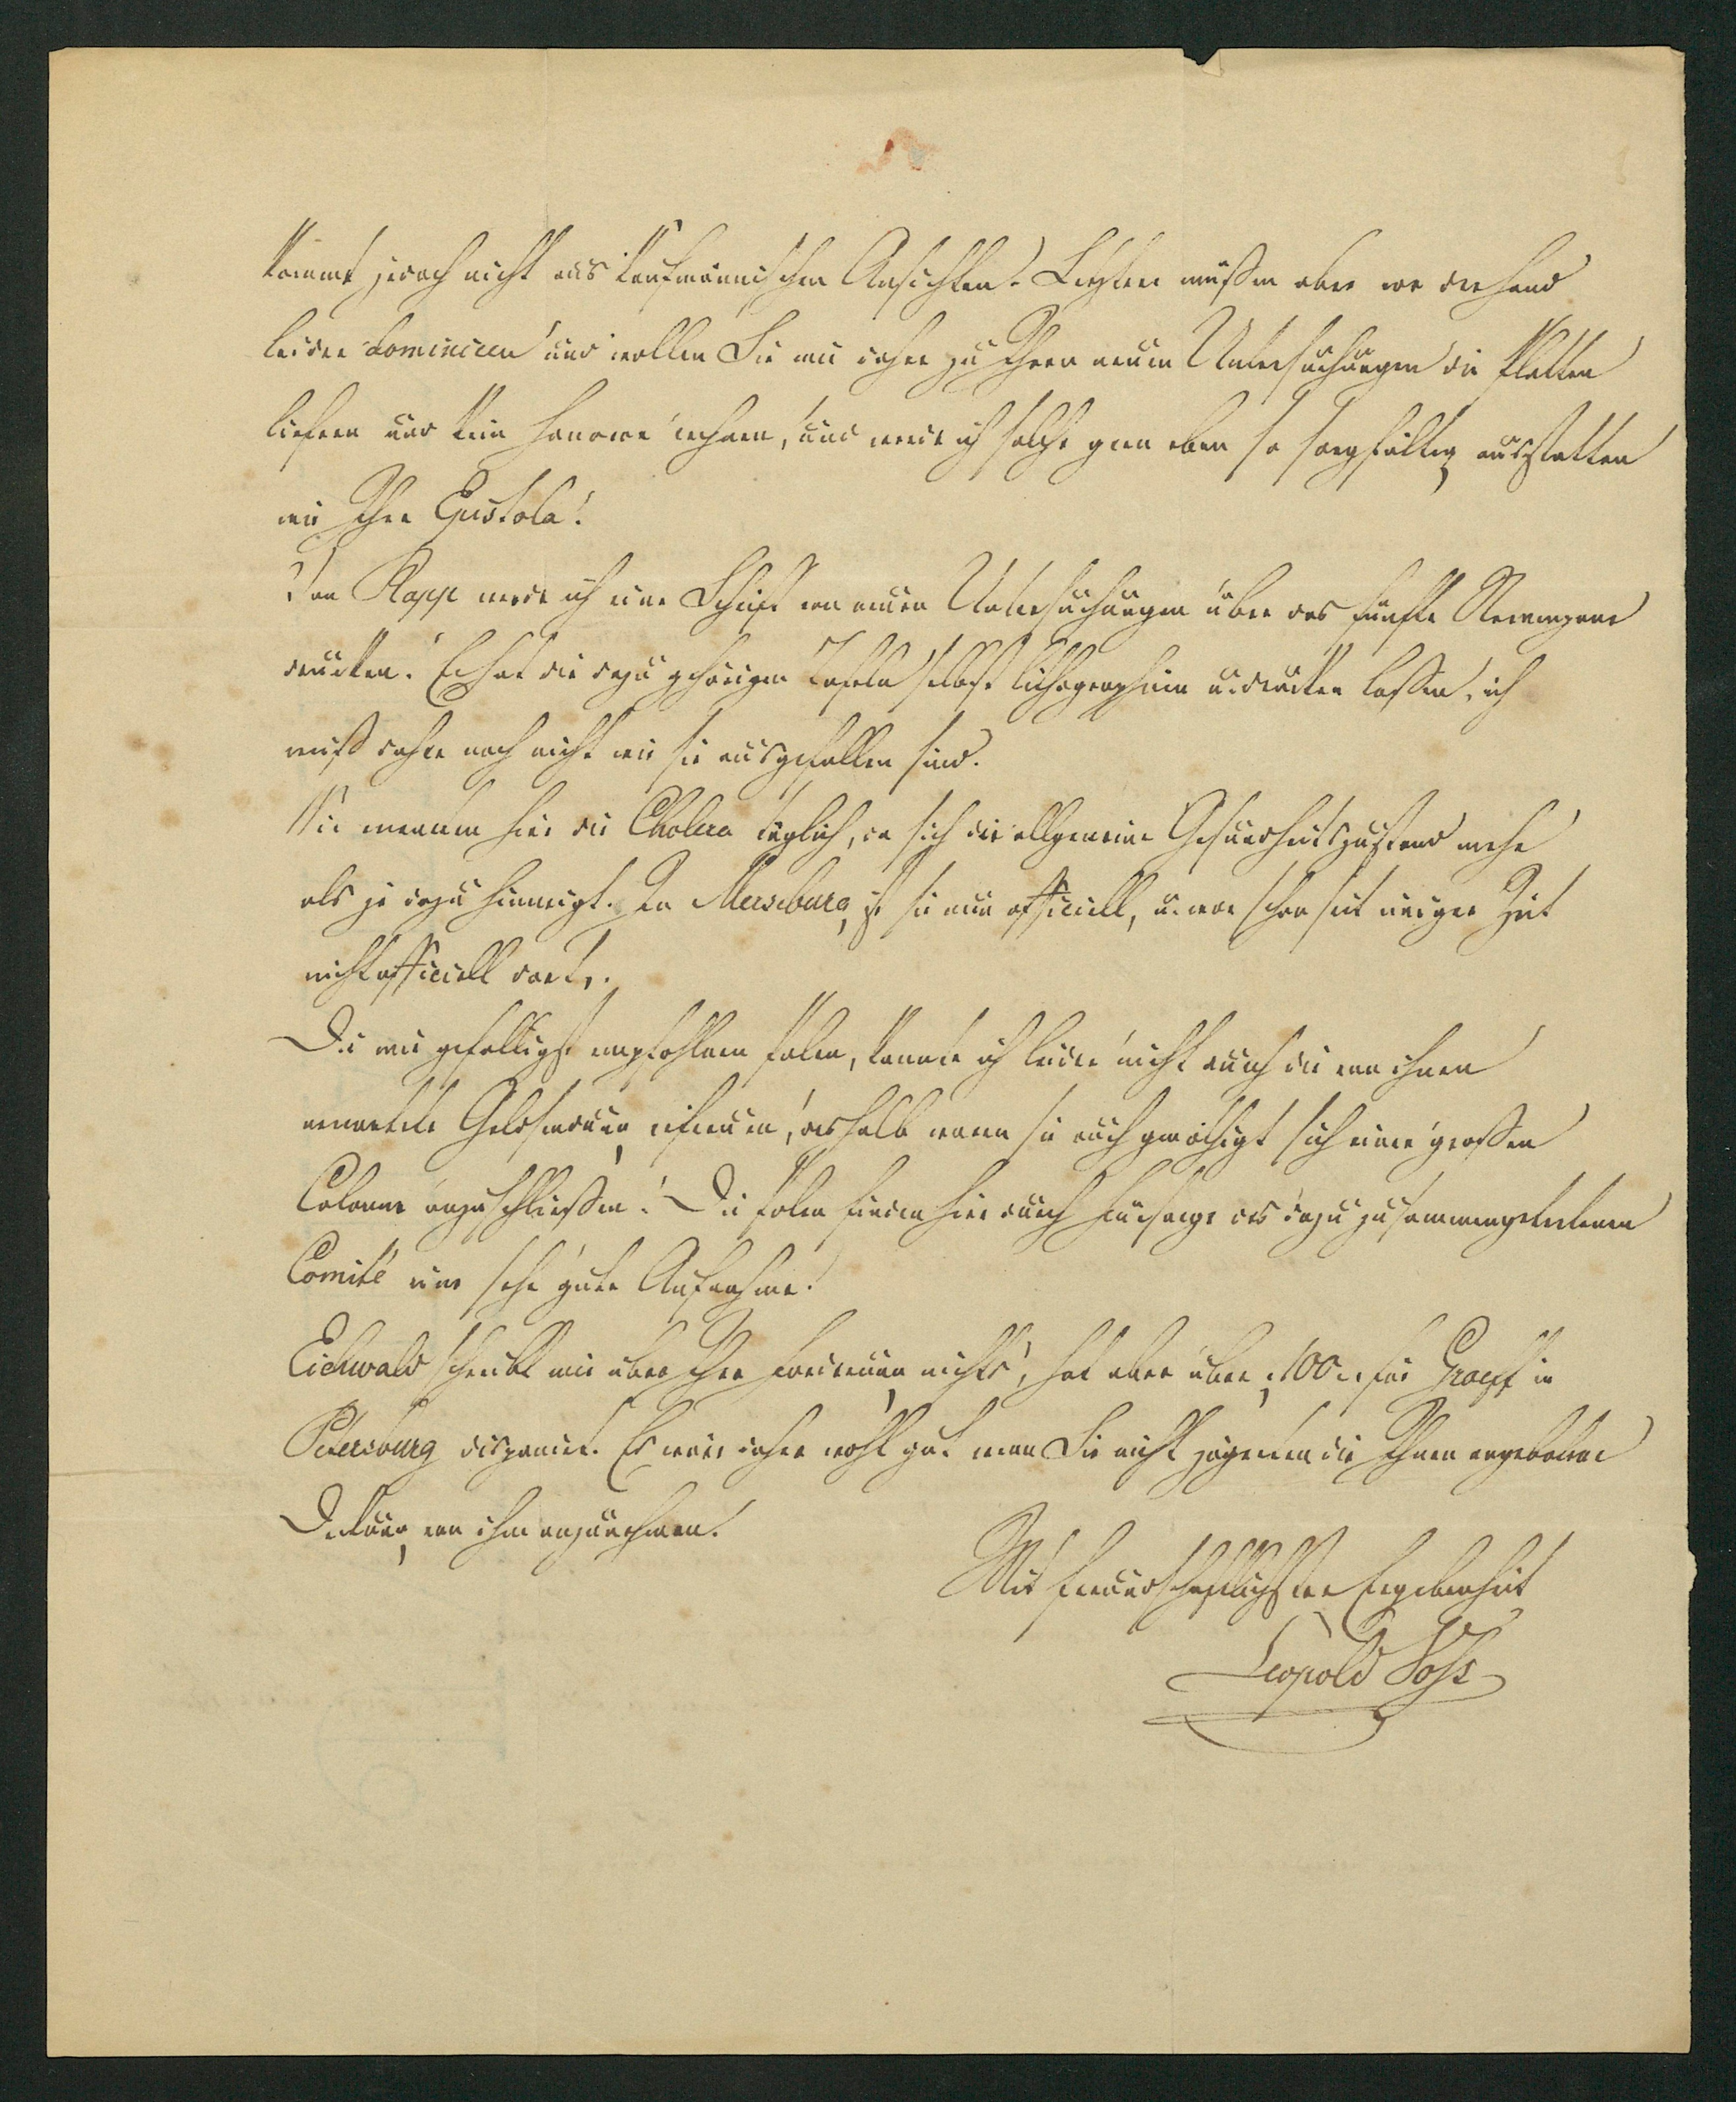 kommt jedoch nicht aus kaufmännischen Ansichten. Letztere müßen aber vor der Hand
leider dominiren und wollen Sie mir daher zu Ihren neuen Untersuchungen die Platten
liefern und kein Honorar rechnen, und werde ich solche gern eben so sorgfältig ausstatten
wie Ihre Epistola!
Von Rapp werde ich eine Schrift von neuen Untersuchungen über das fünfte Nervenpaar
drucken. Er hat die dazu gehörigen Tafeln selbst lithographiren u. drucken laßen, ich
weiß daher noch nicht wie sie ausgefallen sind.
Wir erwarten hier die Cholera täglich, da sich der allgemeine Gesundheitszustand mehr
als je dazu hinneigt. In Merseburg ist sie nun officiell, u. war schon seit einiger Zeit
nichtofficiell dort.
Die mir gefälligst empfohlenen Polen, konnte ich leider nicht durch die von ihnen
erwartete Geldsendung erfreuen, deshalb waren sie auch genöthigt sich einer großen
Colonne anzuschließen. Die Polen finden hier durch Fürsorge des dazu zusammengetretenen
Comité eine sehr gute Aufnahme.
Eichwald schreibt mir über Ihre Forderung nichts, hat aber über 100 für Graeff in
Petersburg disponirt. Es wäre daher wohl gut wenn Sie nicht zögerten die Ihnen angebotene
Deckung von ihm anzunehmen.
Mit freundschaftlichster Ergebenheit
Leopold Voss